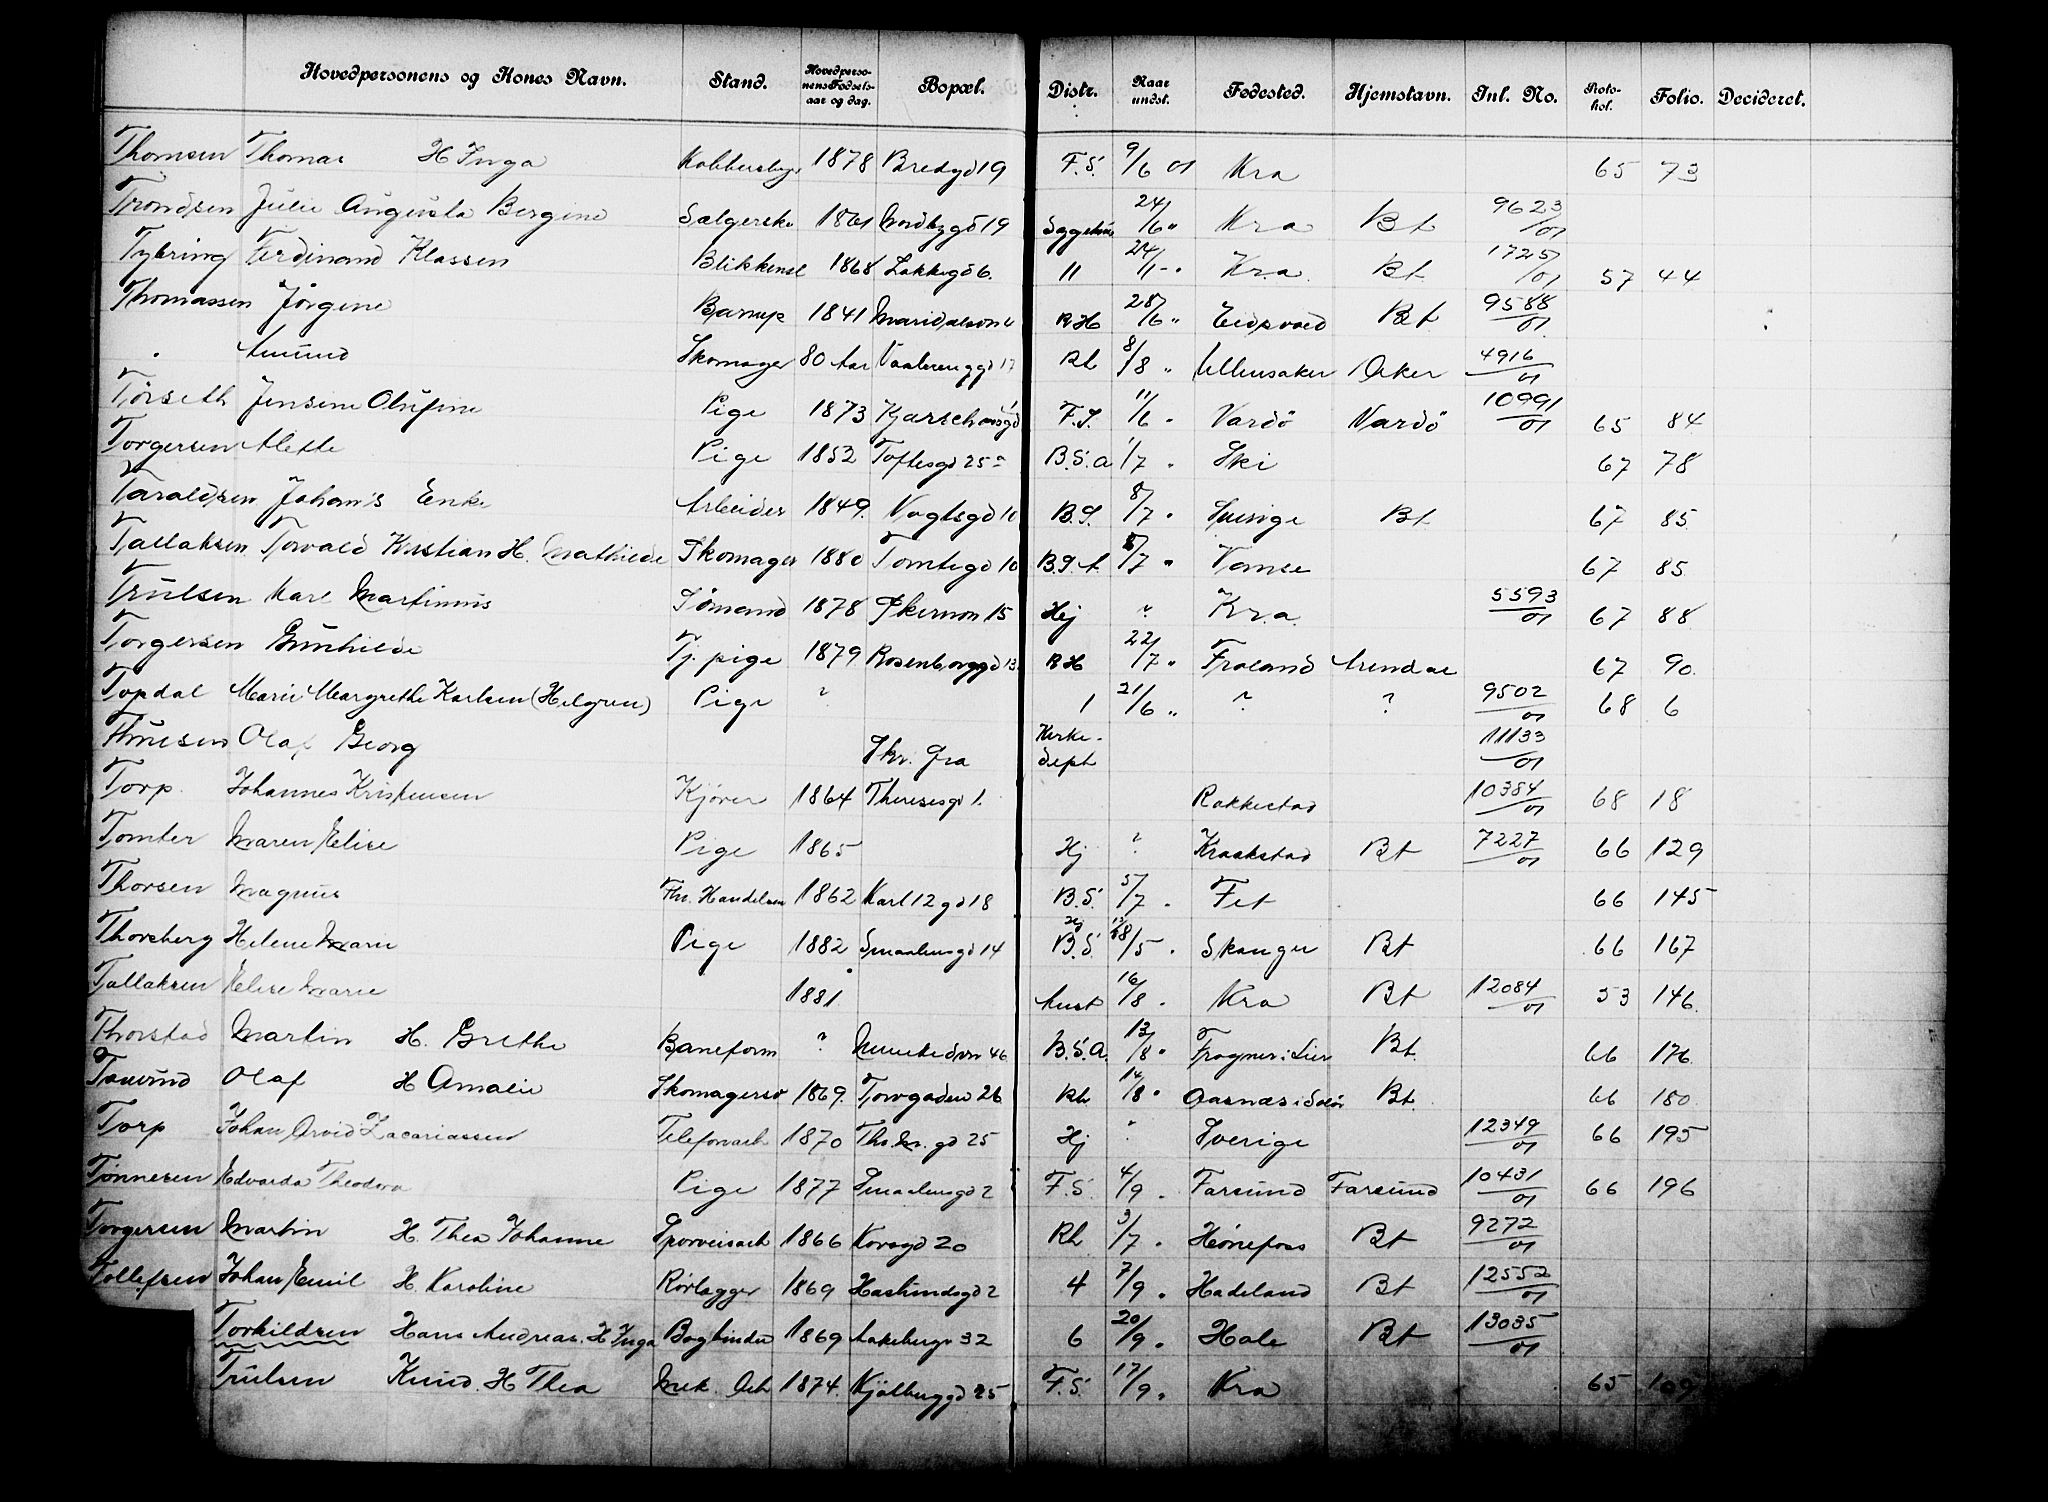 Hovedpersonens og Kones Navn. Stand. Hovedpersonens Fødselsaar og dag. Bopæl. Distr. Naar undst. Fødested. Hjemstavn. Inl. No. Protokol. Folio. Decideret.
Thomsen Thomas H Inga 1878 Bredgd 19 F.S. 9/6 01 Kra 65 73
Trondsen Julie Augusta Bergine Sælgerske 1861 Nordbygd 19 24/6 " Kra Bt 9623/01
Tybring Ferdinand Klassen Blikkensl 1868 Lakkegd 6. 11 24/ " Kra. Bt. 1725/01 57 44
Thomassen Jørgine 1841 RH 28/6 " Eidsvold Bt 9588/01
" Amund Skomager 80 Aar Vaalerenggd 17 Rh 8/8 " Ullensaker Aker 4916/01
Tørseth Jensine Olufine Pige 1873 F.S. 11/6 " Vardö Vardö 10991/01 65 84
Torgersen Alette Pige 1852 Toftesgd 25 a B.S.a 1/7 " Ski 67 78
Taraldsen Johan's Enke Arbeider 1849. Vogtsgd 10 B.S. 8/7 " Sverige Bt. 67 85.
Tallaksen Torvald Kristian H. Mathilde Skomager 1880 Tomtegd 10 B.S.A. 8/7 " 67 85.
Trulsen Karl Martinius Sömand 1878 15 Hj " Kra. 5593/01 67 88.
Torgersen Gunhilde Tj. pige 1879. Rosenborggd 13. RH 22/7 " Froland Arendal 67 90.
Topdal Marie Margrethe Karlsen (Helgren) Pige ? 1 21/6 " ? ? 9502/01 68 6
Thuesen Olaf Georg Kirke-dept 11133/01
Torp Johannes Kristensen Kjörer 1864 Theresesgd 1. Rakkestad 10384/01 68 18
Tomter Maren Elise Pige 1865 Hj ? Kraakstad Bt 7227/01 66 129
Thorsen Magnus Fhv. Handelsm 1862 Karl 12 gd 18 B.S. 5/7 " Fet 66 145
Thorsberg Helene Marie Pige 1882 Smaalensgd 14 Hj B.S. 18/5 " Skanger Bt 66 167
Tallaksen Elise Marie 1881 Aust 16/8 " Kra Bt 12084/01 53 146.
Thorstad Martin H. Grethe Baneform ? Munkedvn 46 B.S.A. 13/8 " Frogner i Lier Bt. 66 176.
Olaf H Amalie Skomagersv 1869. Torvgaden 26 Rh 14/8 " Aasnæs i Solör Bt. 66 180.
Torp Johan Arvid Zacariassen Telefonarb 1870 Ths M. gd 25 Hj " Sverige 12349/01 66 195
Tønnesen Edvarda Theodora Pige 1877 Smaalensgd 2 F.S. 4/9 " Farsund Farsund 10431/01 66 196
Torgersen Martin H. Thea Johanne Sporveisarb 1866 Korsgd 20 Rh 3/7 " Hönefoss Bt 9272/01
Tollefsen Johan Emil H. Karoline Rørlægger 1869 Hauslundsgd 2 4 7/9 " Hadeland Bt 12552/01
Torkildsen Hans Andreas. H Inga Bogbinder 1869 Aakebergv 32 6 20/9 " Hole Bt 13035/01
Trulsen Knud. H Thea Mek. Arb 1874. Kjølberggd 25 F.S. 17/9 " Kra 65 109